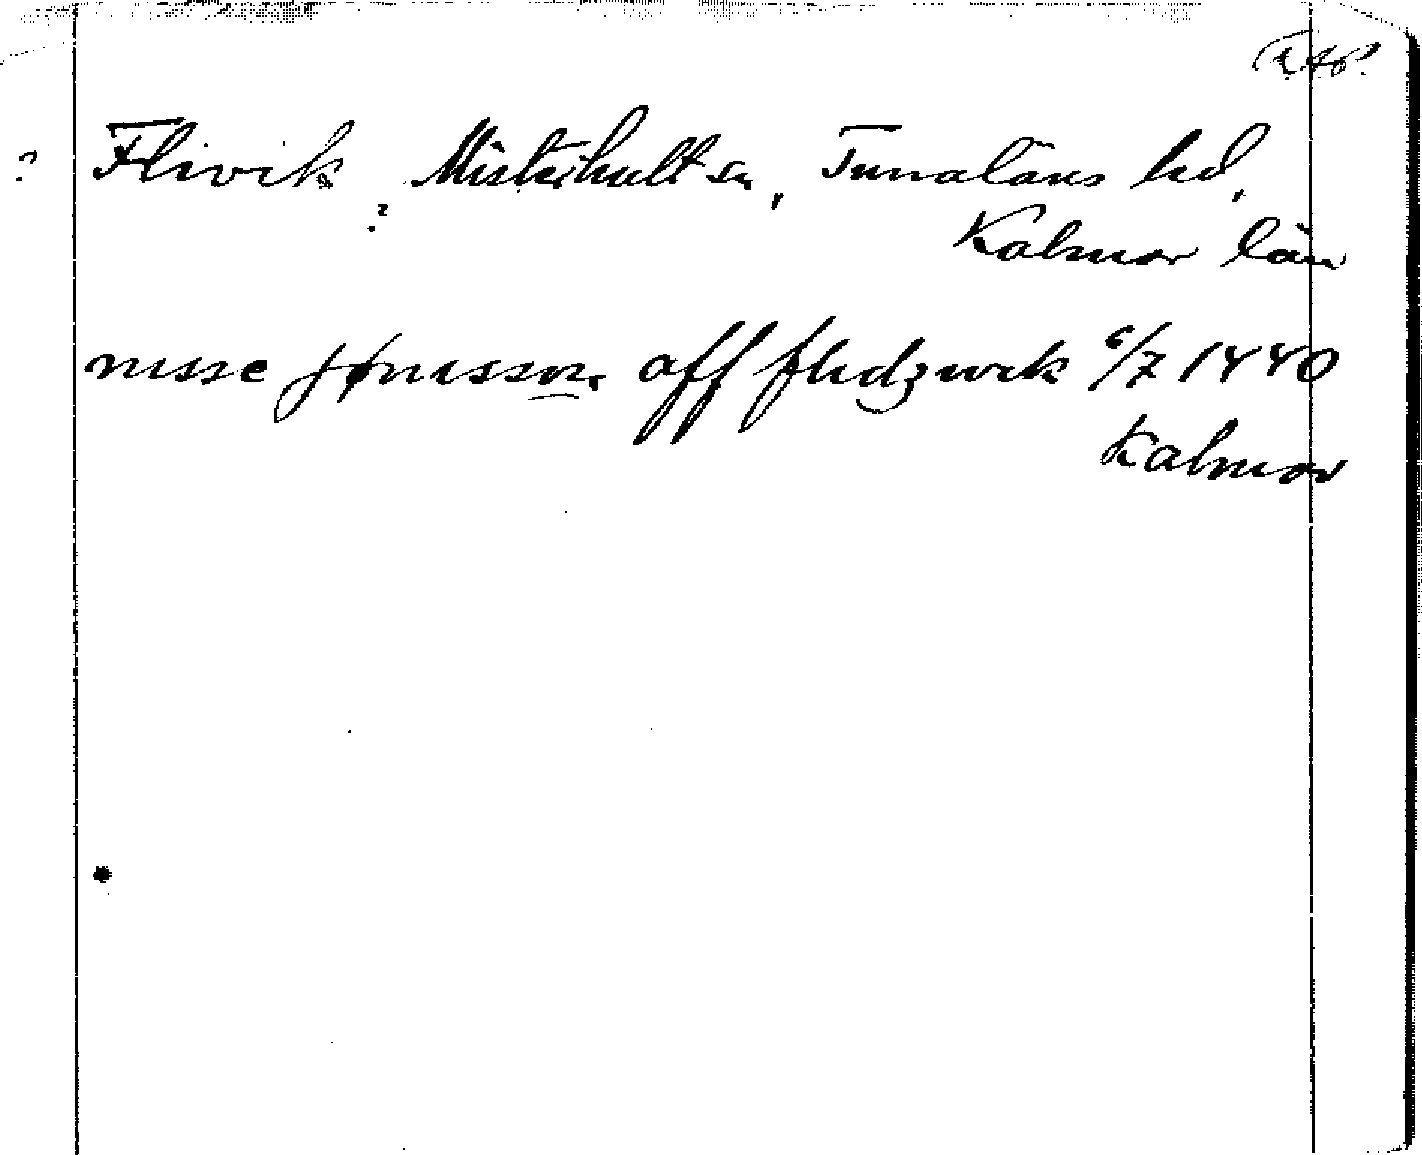 ? Flivik ? Misterhult sn, Tunaläns hd,
Kalmar län
nisse jønisson aff flidzwik 6/7 1440
Kalmar